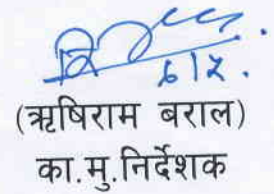 ६।२.
(ऋषिराम बराल)
का.मु.निर्देशक